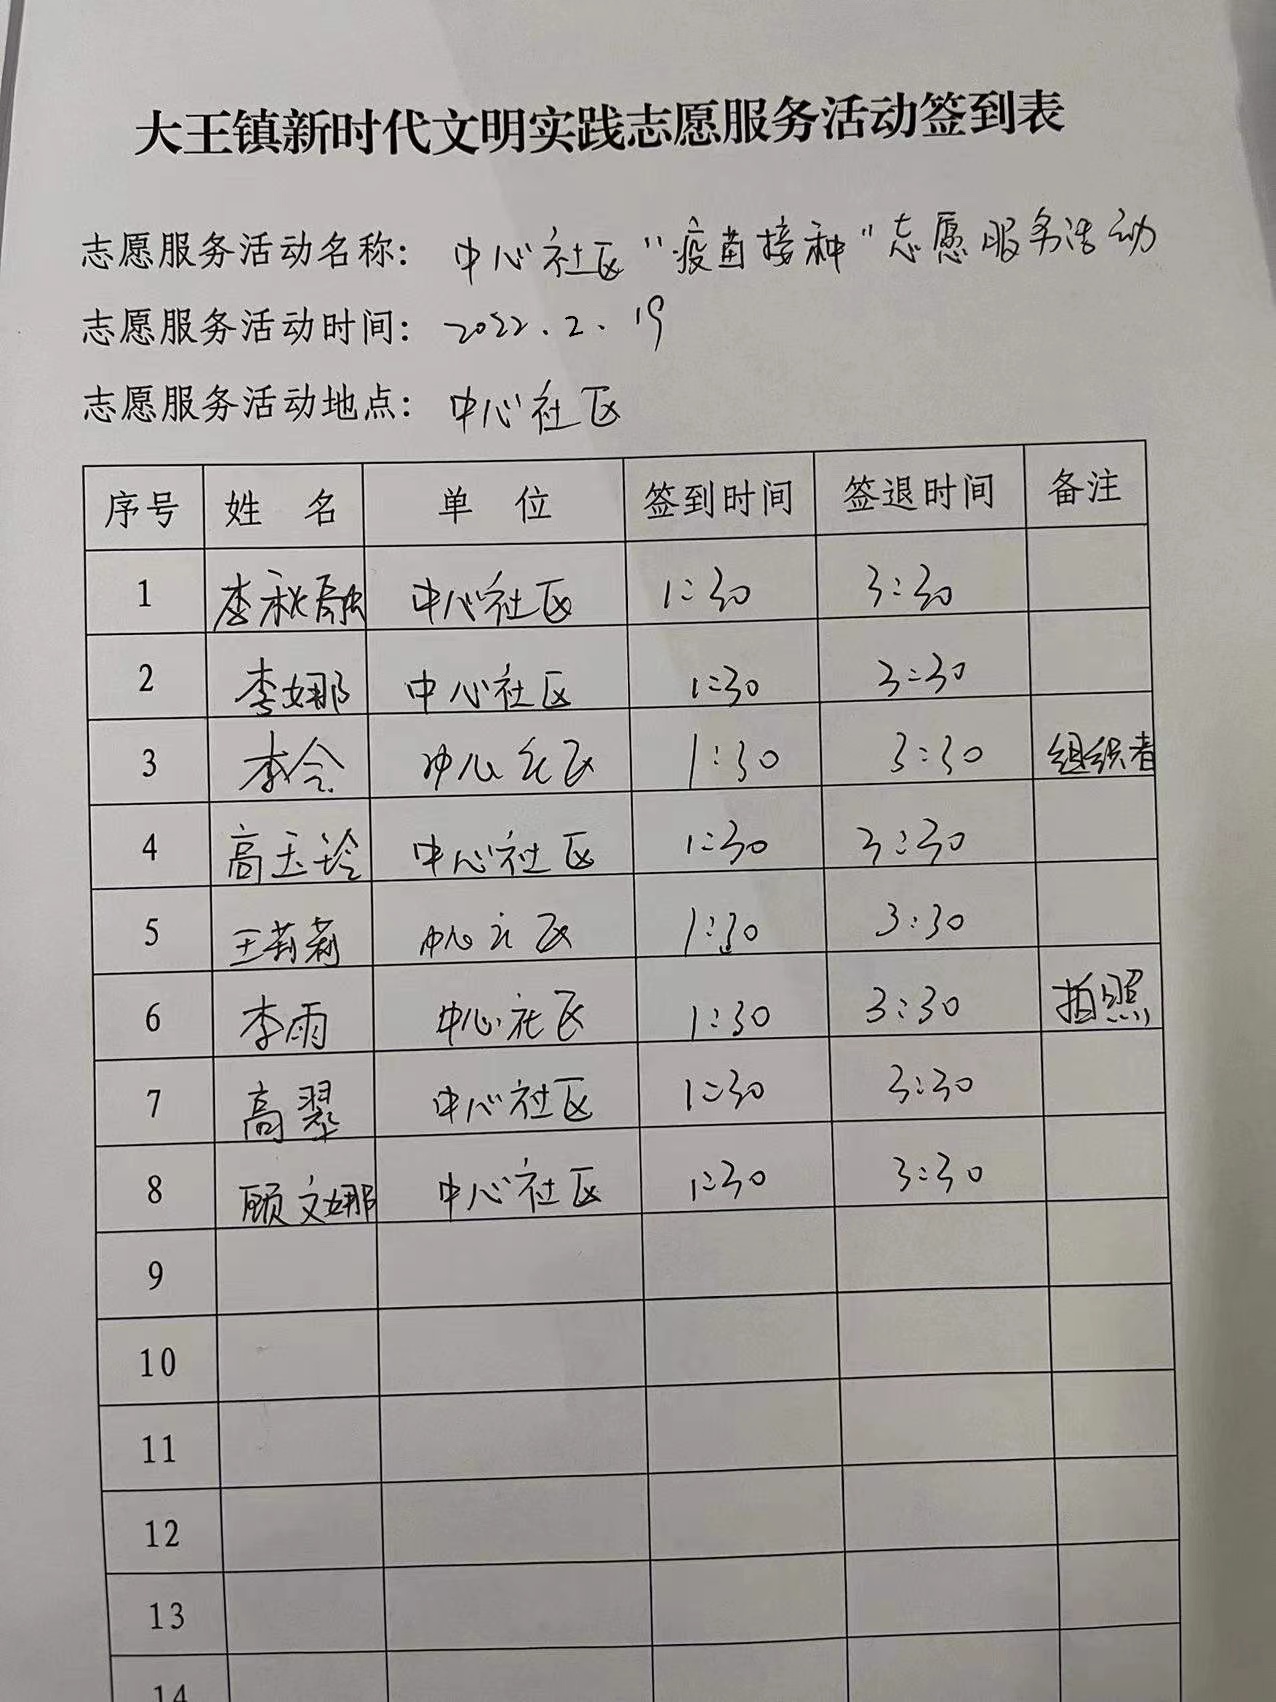 大王镇新时代文明实践志愿服务活动签到表
志愿服务活动名称：中心社区"疫苗接种"志愿服务活动
志愿服务活动时间：2022.2.19
志愿服务活动地点：中心社区
序号 姓名 单位 签到时间 签退时间 备注
1 李秋融 中心社区 1:30 3:30
2 李娜 中心社区 1:30 3:30
3 李令 中心社区 1:30 3:30 组织者
4 高玉玲 中心社区 1:30 3:30
5 王莉莉 中心社区 1:30 3:30
6 李雨 中心社区 1:30 3:30 拍照
7 高翠 中心社区 1:30 3:30
8 顾文娜 中心社区 1:30 3:30
9
10
11
12
13
14